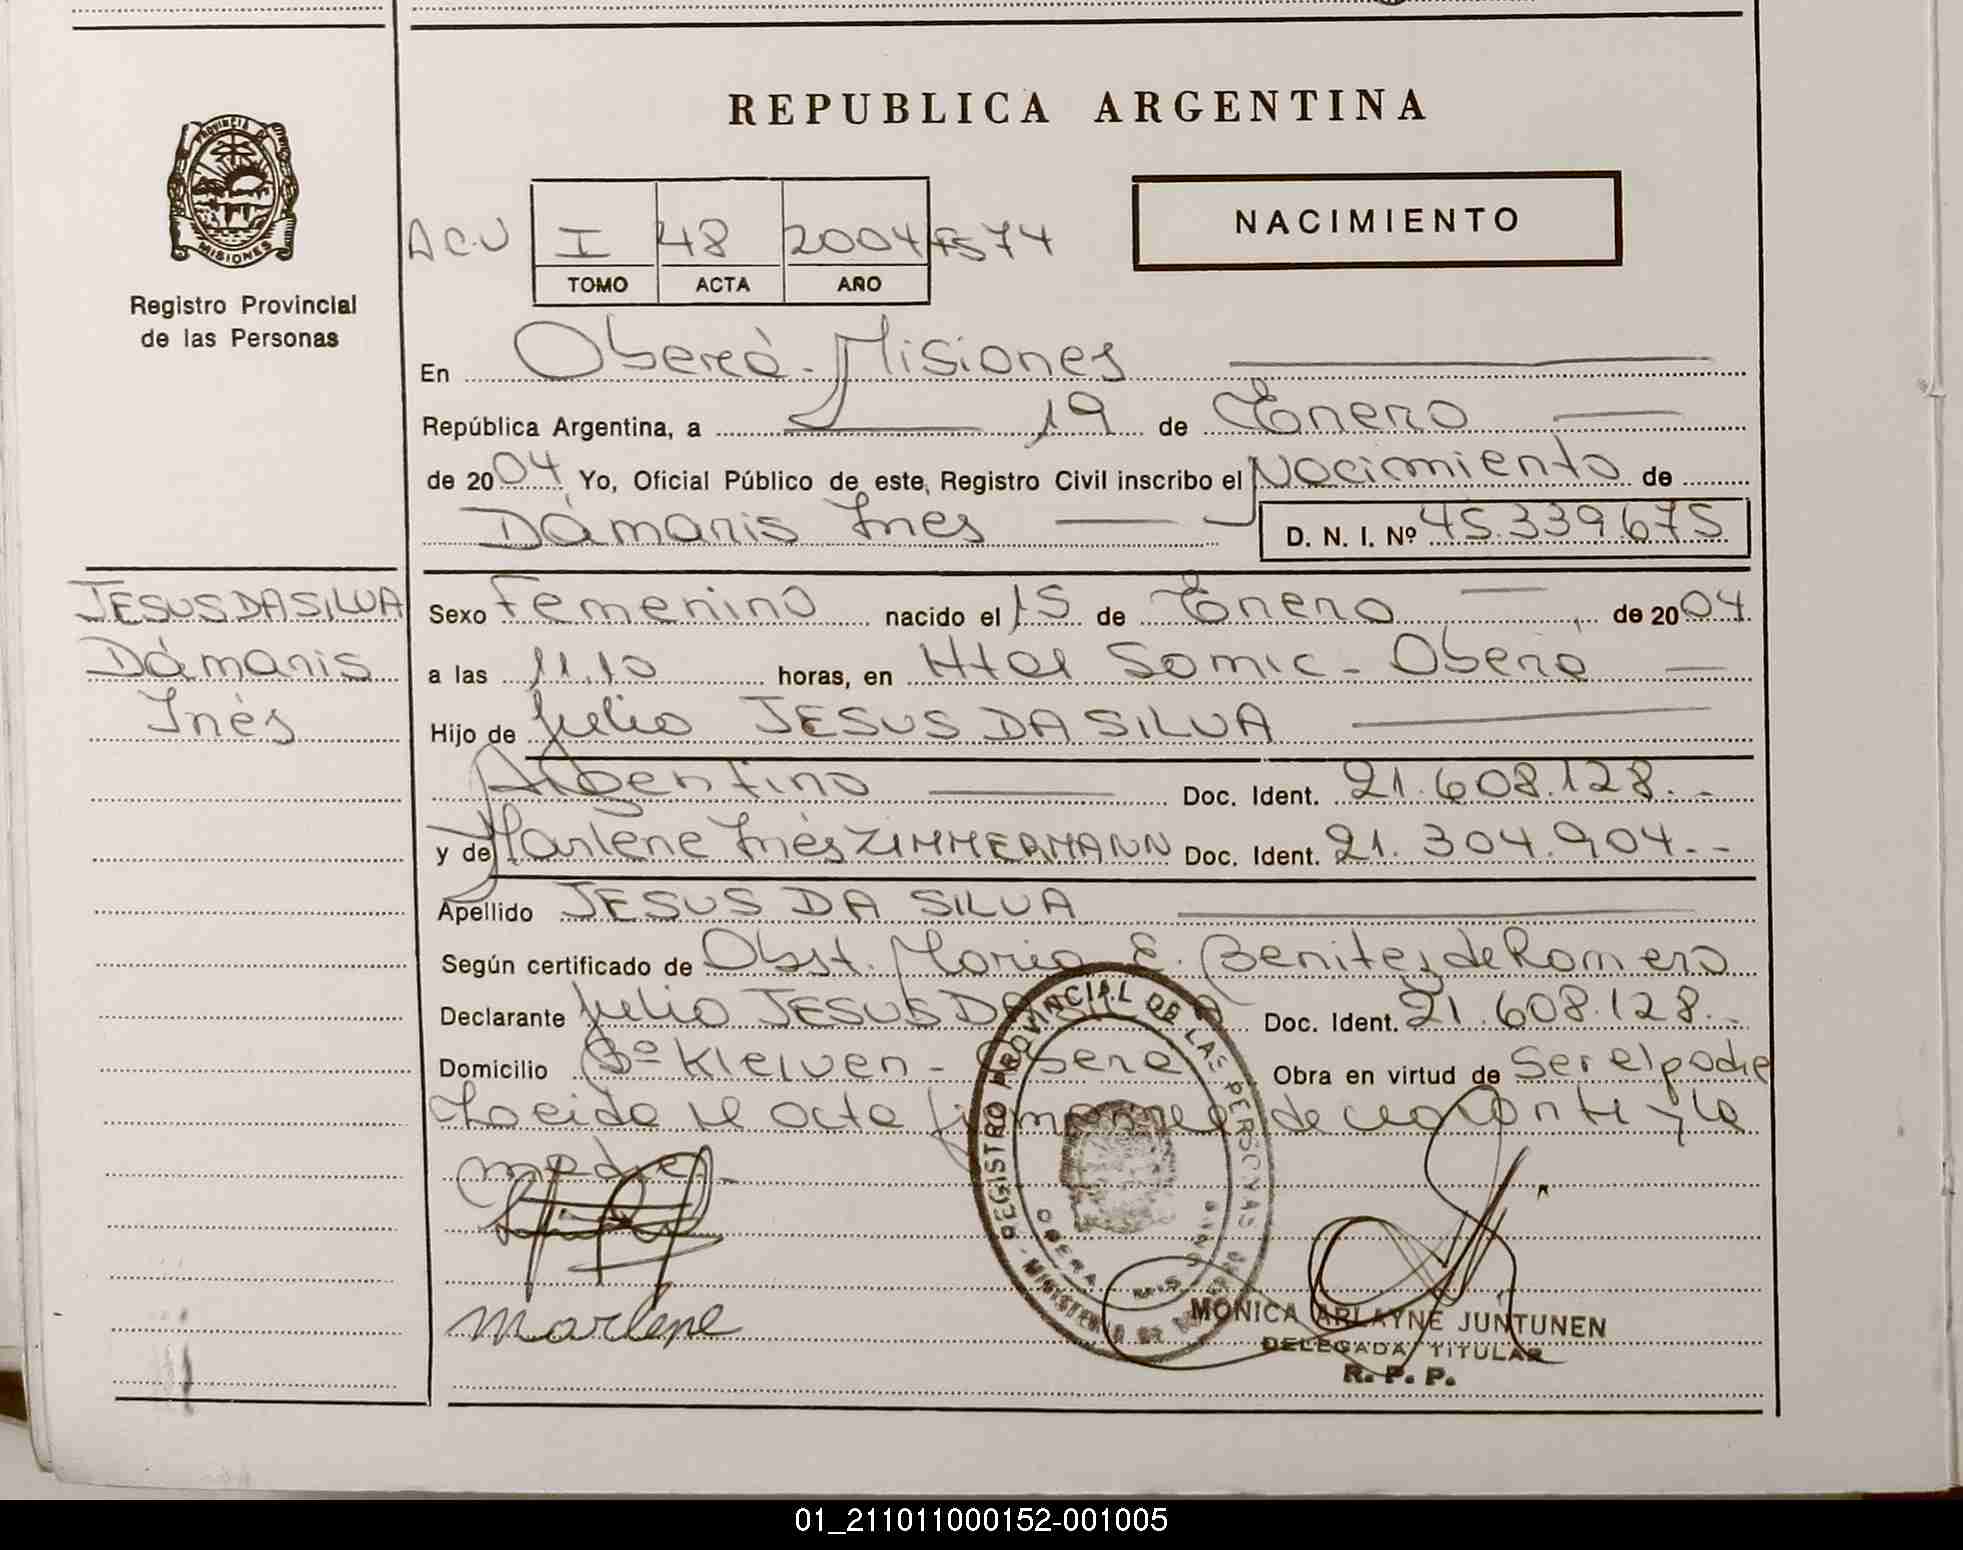 REPUBLICA ARGENTINA
PROVINCIA DE
MISIONES
Registro Provincial
de las Personas
NACIMIENTO
ACU I 48 2004 F574
TOMO ACTA AÑO
En Oberá - Misiones
República Argentina, a 19 de Enero
de 2004 Yo, Oficial Público de este, Registro Civil inscribo el Nacimiento de
Dámaris Ines D. N. I. Nº 45.339.675
JESUS DA SILVA
Dámaris
Inés
Sexo Femenino nacido el 15 de Enero de 2004
a las 11.10 horas, en Htal Samic - Oberá
Hijo de Julio JESUS DA SILVA
Argentino Doc. Ident. 21.608.128.-
y de Marlene Inés ZIMMERMANN Doc. Ident. 21.304.904.--
Apellido JESUS DA SILVA
Según certificado de Obst. María E. Benitez de Romero
Declarante Julio JESUS DA Doc. Ident. 21.608.128.-
Domicilio Bº Kleiven - Oberá Obra en virtud de Ser el padre
Leida el acta firman el declarante y la
madre.-
REGISTRO PROVINCIAL DE LAS PERSONAS
MINISTERIO DE
OBERA
Marlene
MONICA ARLAYNE JUNTUNEN
DELEGADA TITULAR
R. P. P.
01_211011000152-001005